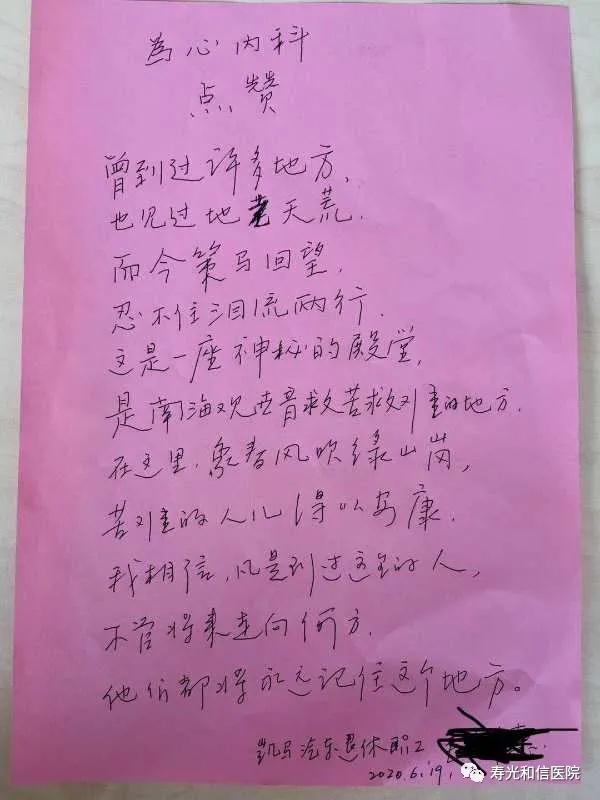 为心内科
点赞
曾到过许多地方，
也见过地老天荒.
而今策马回望，
忍不住泪流两行.
这是一座神秘的殿堂，
是南海观世音救苦救难的地方.
在这里，象春风吹绿山岗，
苦难的人儿得以安康.
我相信，凡是到过这里的人，
不管将来走向何方.
他们都将永远记住这个地方。
凯马汽车退休职工
2020.6.19.
寿光和信医院